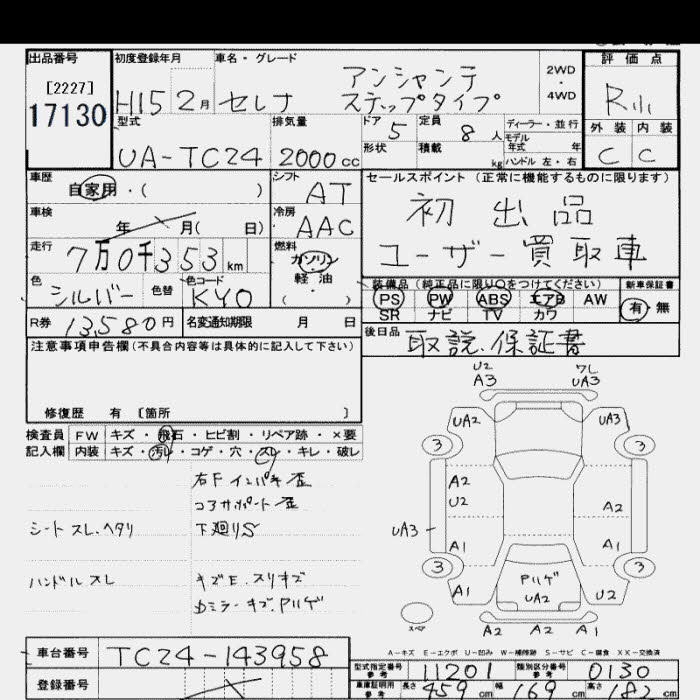 出品番号
[2227]
17130
初度登録年月
H15 2月
車名・グレード
アンシャンテ
セレナ ステップタイプ
2WD
・
4WD
評価点
R
外装 内装
C C
型式
UA-TC24
排気量
2000cc
ドア 5
定員 8人
形状
積載 kg
ディーラー・並行
モデル
年式 年
ハンドル 左・右
車歴
自家用・( )
シフト
AT
セールスポイント (正常に機能するものに限ります)
初出品
ユーザー買取車
車検
年 月( 日)
冷房
AAC
走行
7万0千353km
燃料
ガソリン
軽油
( )
色
シルバー
色替
色コード
KY0
装備品(純正品に限り○をつけてください)
PS PW ABS エアB AW
SR ナビ TV カワ
新車保証書
有・無
R券 13,580円
名変通知期限 月 日
後日品
取説.保証書
注意事項申告欄(不具合内容等は具体的に記入して下さい)
修復歴 有 〔箇所 〕
検査員 FW キズ・飛石・ヒビ割・リペア跡・×要
記入欄 内装 キズ・汚れ・コゲ・穴・スレ・キレ・破レ
右Fインパネ歪
コアサポート歪
シートスレ.ヘタリ
下廻りS
ハンドルスレ
キズE.スリキズ
カミラーキズ.Pハゲ
U2
A3
ワレ
UA3
UA2
UA3
3
3
A2
U2
A2
UA3
A1
A1
3
3
PハゲUA2
A1
U2
スペア
A2 A2 A1
A-キズ E-エクボ U-凹み W-補修跡 S-サビ C-腐食 XX-交換済
車台番号
TC24-143958
登録番号
型式指定番号
参考
11201
類別区分番号
参考
0130
車庫証明用
参考
長さ 459cm
幅 169cm
高さ 182cm